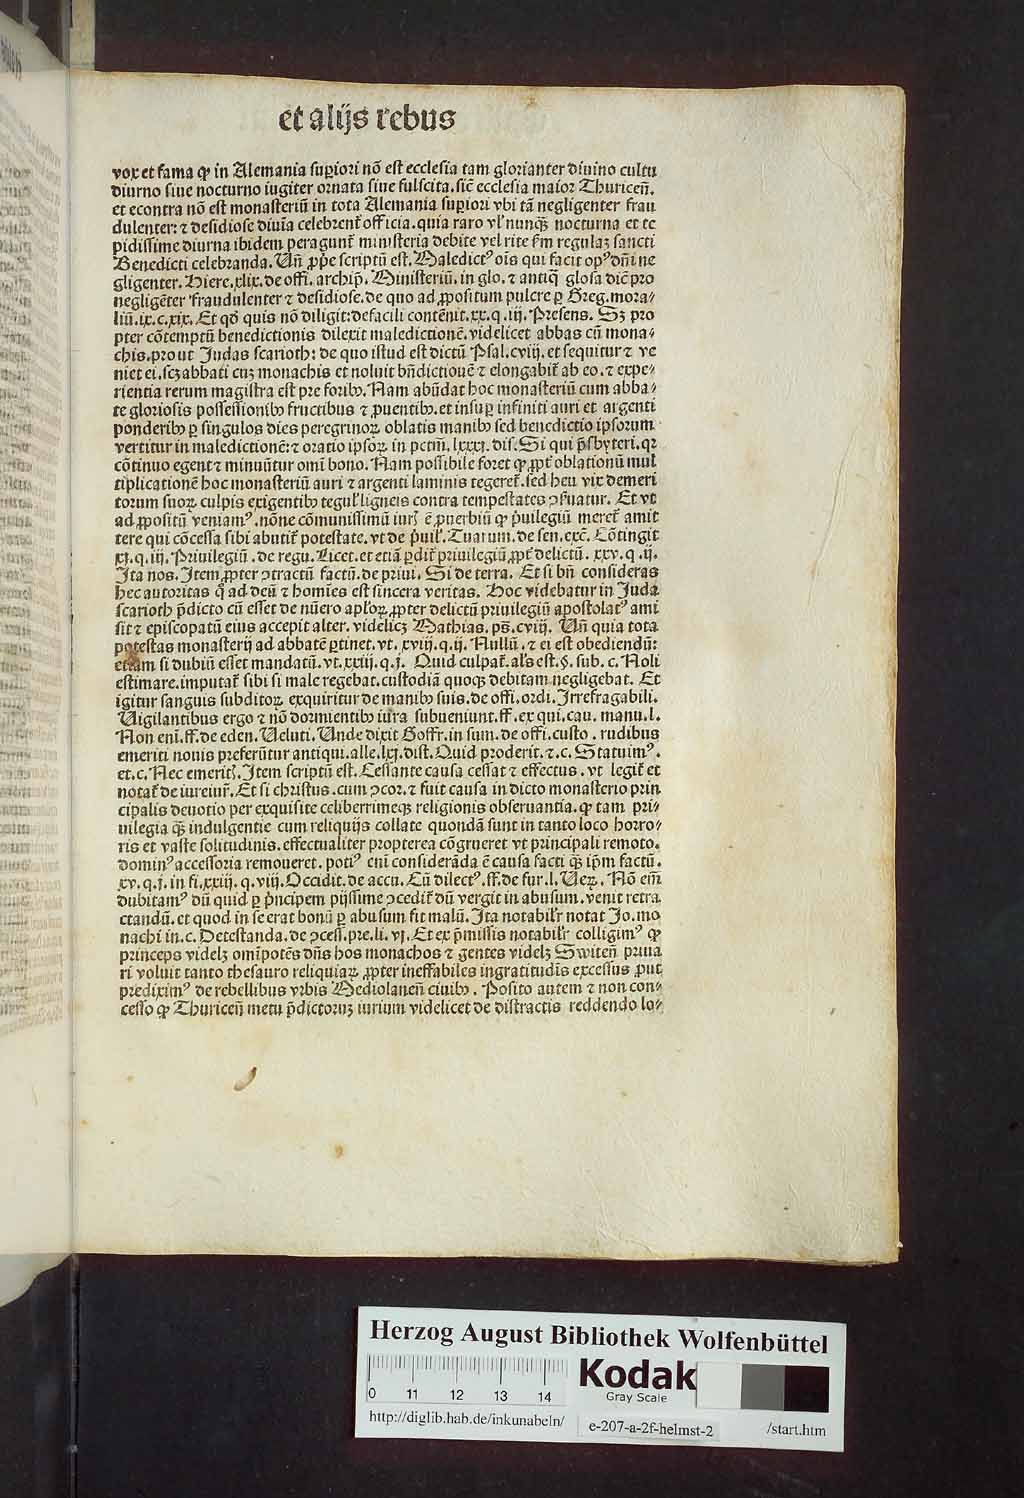 et alijs rebus
vox et fama ꝙ in Alemania supiori nō est ecclesia tam glorianter diuino cultu
diurno siue nocturno iugiter ornata siue fulscita. sic̄ ecclesia maior Thuriceñ.
et econtra nō est monasteriū in tota Alemania supiori vbi tā negligenter frau
dulenter: ⁊ desidiose diuīa celebrent̄ officia. quia raro vl' nunqꝫ nocturna et te
pidissime diurna ibidem peragunt̄ ministeria debite vel rite fm regulaꝫ sancti
Benedicti celebranda. Uñ ꝓpe scriptū est. Maledictꝰ oīs qui facit opꝰ dn̄i ne
gligenter. Hiere. xlix. de offi. archip̄. Ministeriū. in glo. ⁊ antiq̄ glosa dic̄ pro
negligēter fraudulenter ⁊ desidiose. de quo ad ꝓpositum pulcre ꝑ Greg. mora⸗
liū. ix. c. xix. Et qd̄ quis nō diligit: defacili contēnit. xx. q. iij. Presens. Sꝫ pro
pter cōtemptū benedictionis dilexit maledictionē. videlicet abbas cū mona⸗
chis. prout Judas scarioth: de quo istud est dictū Psal. cviij. et sequitur ⁊ ve
niet ei. scꝫ abbati cuꝫ monachis et noluit bn̄dictionē ⁊ elongabit̄ ab eo. ⁊ expe⸗
rientia rerum magistra est pre foribꝰ. Nam abūdat hoc monasteriū cum abba⸗
te gloriosis possessionibꝰ fructibus ⁊ ꝓuentibꝰ. et insuꝑ infiniti auri et argenti
ponderibꝰ ꝑ singulos dies peregrinoꝝ oblatis manibꝰ sed benedictio ipsorum
vertitur in maledictionē: ⁊ oratio ipsoꝝ in pctm̄. lxxxj. dis. Si qui p̄sbyteri. qꝛ
cōtinuo egent ⁊ minuūtur omī bono. Nam possibile foret ꝙ ꝓpt̄ oblationū mul
tiplicationē hoc monasteriū auri ⁊ argenti laminis tegeret̄. sed heu vix demeri
torum suoꝝ culpis exigentibꝰ tegul' ligneis contra tempestates ꝯseruatur. Et vt
ad ꝓpositū veniamꝰ. nōne cōmunissimū iur̄ ē ꝓuerbiū ꝙ p̄uilegiū meret̄ amit
tere qui cōcessa sibi abutit̄ potestate. vt de p̄uil'. Tuarum. de sen. exc̄. Cōtingit
xj. q. iij. Priuilegiū. de regu. Licet. et etiā ꝑdit̄ priuilegiū ꝓpt̄ delictū. xxv. q. ij.
Ita nos. Item ꝓpter ꝯtractū factū. de priui. Si de terra. Et si bn̄ consideras
hec autoritas q̄ ad deū ⁊ homīes est sincera veritas. Hoc videbatur in Juda
scarioth p̄dicto cū esset de nūero apl'oꝝ ꝓpter delictū priuilegiū apostolatꝰ ami
sit ⁊ episcopatū eius accepit alter. videlicꝫ Mathias. ps̄. cviij. Uñ quia tota
potestas monasterij ad abbatē ꝑtinet. vt. xviij. q. ij. Nullū. ⁊ ei est obediendū:
etiam si dubiū esset mandatū. vt. xxiij. q. j. Quid culpat̄. al's est. §. sub. c. Noli
estimare. imputat̄ sibi si male regebat. custodiā quoqꝫ debitam negligebat. Et
igitur sanguis subditoꝝ exquiritur de manibꝰ suis. de offi. ordi. Irrefragabili.
Uigilantibus ergo ⁊ nō dormientibꝰ iura subueniunt. ff. ex qui. cau. manu. l.
Non eni. ff. de eden. Ueluti. Unde dixit Goffr. in sum. de offi. custo. rudibus
emeriti nouis preferūtur antiqui. alle. lxj. dist. Quid proderit. ⁊. c. Statuimꝰ.
et. c. Nec emerit̄. Item scriptū est. Cessante causa cessat ⁊ effectus. vt legit̄ et
notat̄ de iureiur̄. Et si christus. cum ꝯcor. ⁊ fuit causa in dicto monasterio prin
cipalis deuotio per exquisite celiberrimeqꝫ religionis obseruantia. ꝙ tam pri⸗
uilegia qꝫ indulgentie cum reliquijs collate quondā sunt in tanto loco horro⸗
ris et vaste solitudinis. effectualiter propterea cōgrueret vt principali remoto.
dominꝰ accessoria remoueret. potiꝰ eni considerāda ē causa facti qꝫ ip̄m factū.
xv. q. j. in fi. xxiij. q. viij. Occidit. de accu. Cū dilectꝰ. ff. de fur. l. Ueꝝ. Nō em̄
dubitamꝰ dū quid ꝑ p̄ncipem pijssime ꝯcedit̄ dū vergit in abusum. venit retra
ctandū. et quod in se erat bonū ꝑ abusum fit malū. Ita notabil'r notat Jo. mo
nachi in. c. Detestanda. de ꝯcess. pre. li. vj. Et ex p̄missis notabil'r colligimꝰ ꝙ
princeps videlꝫ omīpotēs dn̄s hos monachos ⁊ gentes videlꝫ Switeñ priua
ri voluit tanto thesauro reliquiaꝝ ꝓpter ineffabiles ingratitudīs excessus ꝓut
prediximꝰ de rebellibus vrbis Mediolaneñ ciuibꝰ. Posito autem ⁊ non con⸗
cesso ꝙ Thuriceñ metu p̄dictoruꝫ iurium videlicet de distractis reddendo lo⸗
Herzog August Bibliothek Wolfenbüttel
0 11 12 13 14
Kodak
Gray Scale
http://diglib.hab.de/inkunabeln/ e-207-a-2f-helmst-2 /start.htm